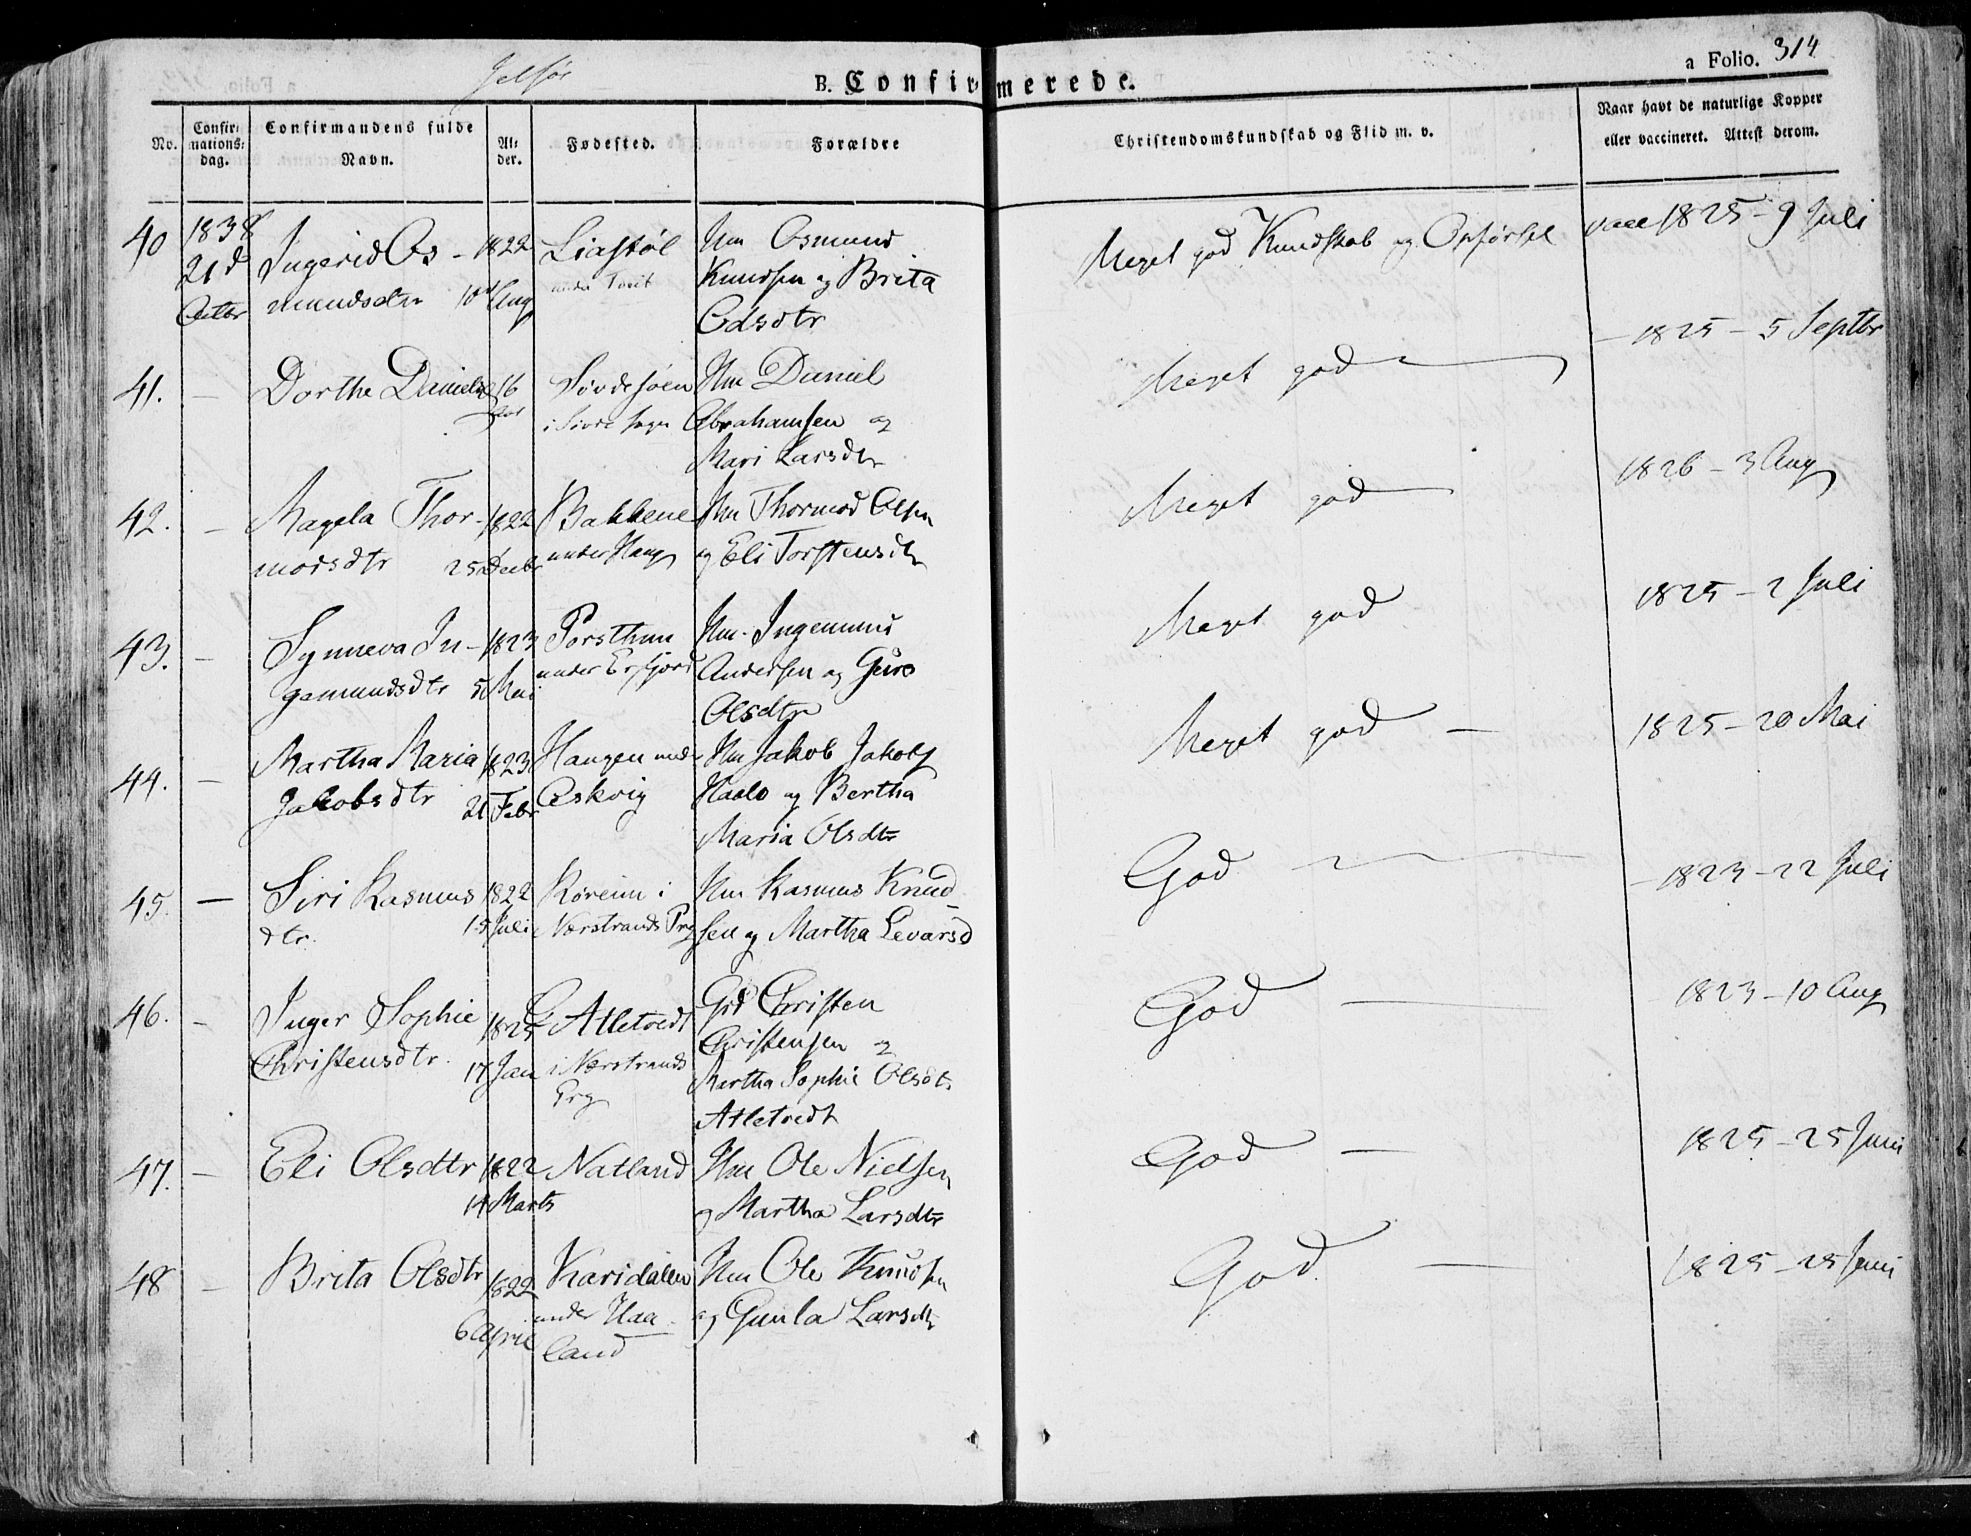 Jelsør
B. Confirmerede.
a Folio. 314
No.
Confirmations-dag.
Confirmandens fulde Navn.
Alder.
Fødested.
Forældre
Christendomskundskab og Flid m. v.
Naar havt de naturlige Kopper eller vaccineret. Attest derom.
40 1838 Ingerid Os- 1822 Liastøl Hm Osmund Meget god Kundskab og Opførsel vacc 1825 - 9 Juli
21d mundsdtr 10d Aug under Tveit Knudsen og Brita
Octbr Edsdtr
41. — Dorthe Danielsd 16 Søvdesøen Hm Daniel Meget god — 1825 - 5 Septbr
Aar i Søvde Sogn Abrahamsen og
Mari Larsdtr
42. — Magela Thor- 1822 Bakkene Hm Thormod Olsen Meget god 1826 - 3 Aug
modsdtr 25 Decbr under Haug og Eli Torstensdtr
43. — Synneva In- 1823 Porsthun Hm. Ingemund Meget god 1825 - 2 Juli
gemundsdtr 5 Mai under Erfjord Andersen og Guro
Olsdtr
44. — Martha Maria 1823 Haugen und Hm Jakob Jakobs Meget god — 1825 - 20 Mai
Jakobsdtr 21 Febr Askvig Haalo og Bertha
Maria Olsdtr
45. — Siri Rasmus 1822 Røreim i Hm Rasmus Knud- God — 1823 - 22 Juli
dtr. 15 Juli Nærstrands Prg sen og Martha Levarsd
46. — Inger Sophie 1823 Atletvedt Grd Christen God — 1823 - 10 Aug
Christensdtr. 17 Jan i Nærstrands Christensen og
Prg Martha Sophie Olsdtr
Atletvedt
47. — Eli Olsdtr 1822 Natland Hm Ole Nielsen God — 1825 - 25 Juni
14 Marts og Martha Larsdtr
48 — Brita Olsdtr 1822 Karidalen Hm Ole Knudsen God — 1825 - 25 Juni
6 April under Haa- og Gunla Larsdtr
land